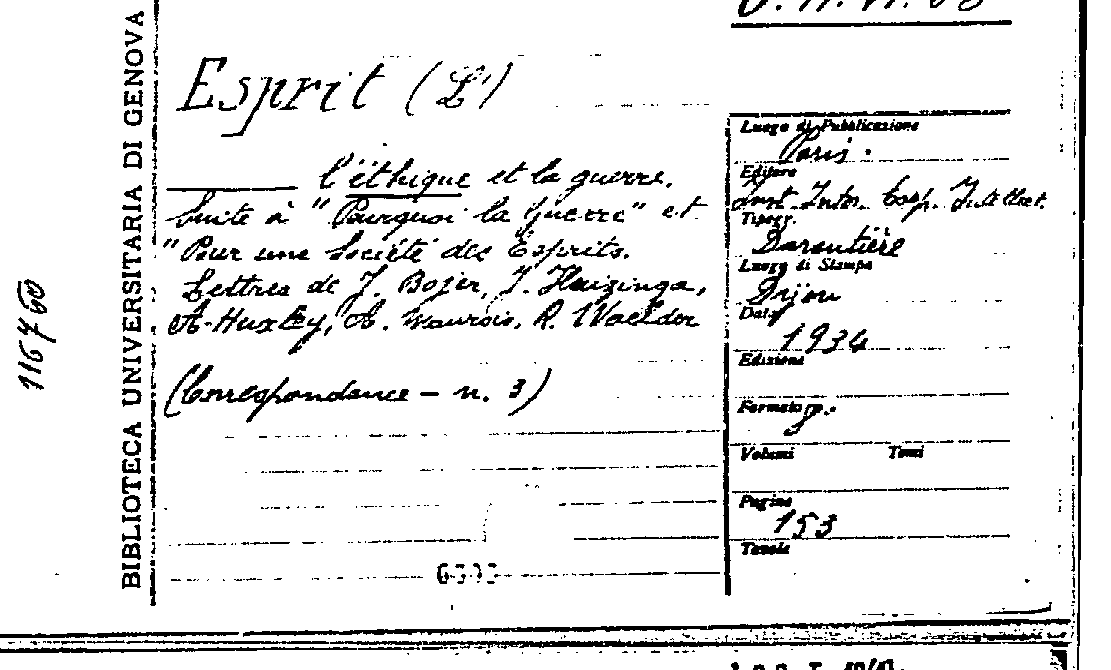 BIBLIOTECA UNIVERSITARIA DI GENOVA
116760
Esprit (L')
l'éthique et la guerre.
Suite à "Pourquoi la guerre" et
"Pour une Société des Esprits.
Lettres de J. Bojer, J. Huizinga,
A. Huxley, A. Maurois, R. Waelder
(Correspondance – n. 3)
Luogo di Pubblicazione
Paris.
Editore
Inst. Inter. Coop. Intellect.
Tipogr.
Darantière
Luogo di Stampa
Dijon
Data
1934
Edizione
Formato
Volumi Tomi
Pagine
153
Tavole